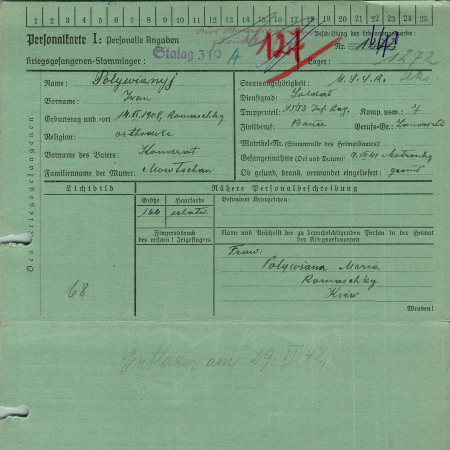 1 2 3 4 5 6 7 8 9 10 11 12 13 14 15 16 17 18 19 20 21 22 23 24 25
Personalkarte I: Personelle Angaben
Kriegsgefangenen-Stammlager: Stalag 319 A
127
Beschriftung der Erkennungsmarke
Nr. 1272
Lager:
1272
Des Kriegsgefangenen
Name: Polywianyj
Vorname: Iwan
Geburtstag und -ort 14.VI.1908, Romaschky
Religion orthodox
Vorname des Vaters: Kondrat
Familienname der Mutter: Mowtschan
Staatsangehörigkeit:
Dienstgrad: Soldat
Truppenteil: Inf. Reg. Komp. usw.: 7
Zivilberuf: Bauer Berufs-Gr.:
Matrikel-Nr. (Stammrolle des Heimatstaates):
Gefangennahme (Ort und Datum):
Ob gesund, krank, verwundet eingeliefert: gesund
Lichtbild
68
Nähere Personalbeschreibung
Größe Haarfarbe
166
Besondere Kennzeichen:
Fingerabdruck
des rechten! Zeigefingers
Name und Anschrift der zu benachrichtigenden Person in der Heimat
des Kriegsgefangenen
Frau:
Polywiana Maria
Romaschky
Kiew
Wenden!
Entlassen am 29.